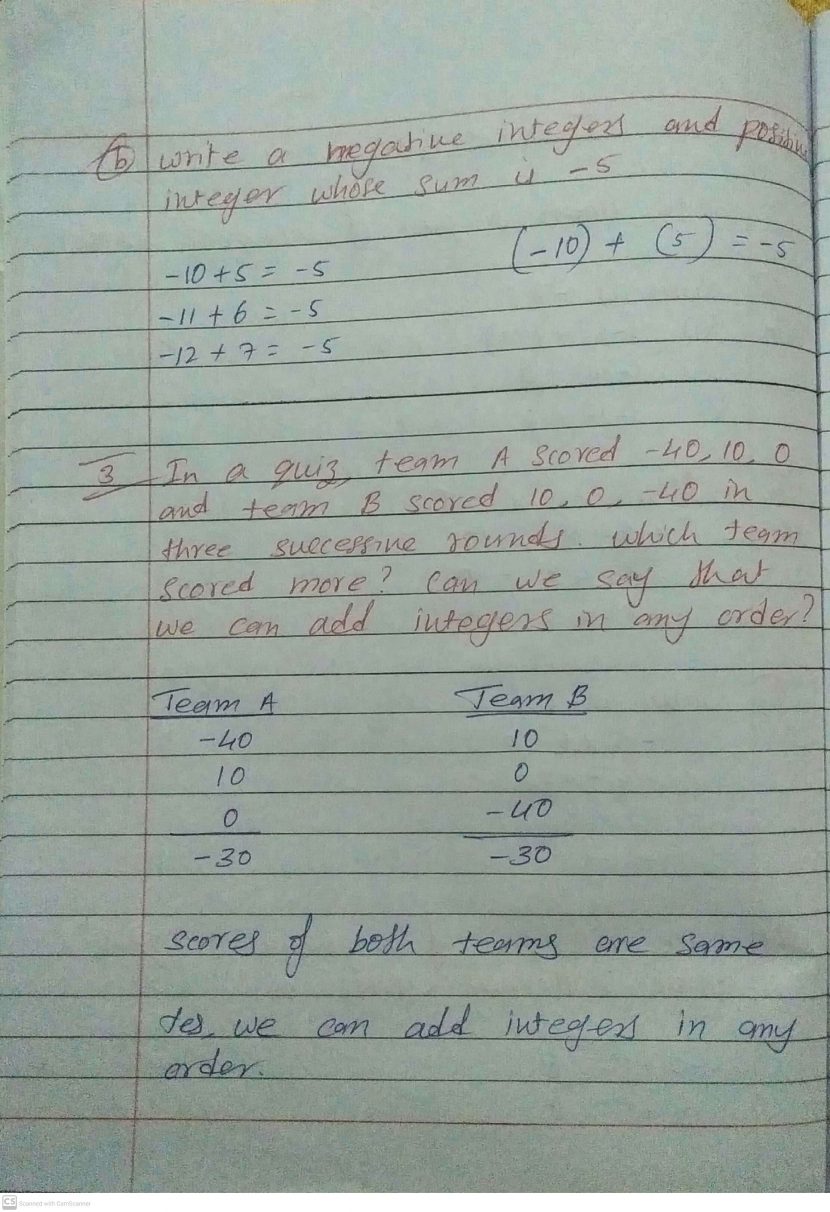 (b) write a negative integers and positive
integer whose sum is -5
(-10) + (5) = -5
-10 + 5 = -5
-11 + 6 = -5
-12 + 7 = -5
3 In a quiz, team A scored -40, 10, 0
and team B scored 10, 0, -40 in
three successive rounds. which team
scored more? Can we say that
we can add integers in any order?
Team A Team B
-40 10
10 0
0 -40
-30 -30
scores of both teams are same
Yes, we can add integers in any
order.
CS Scanned with CamScanner